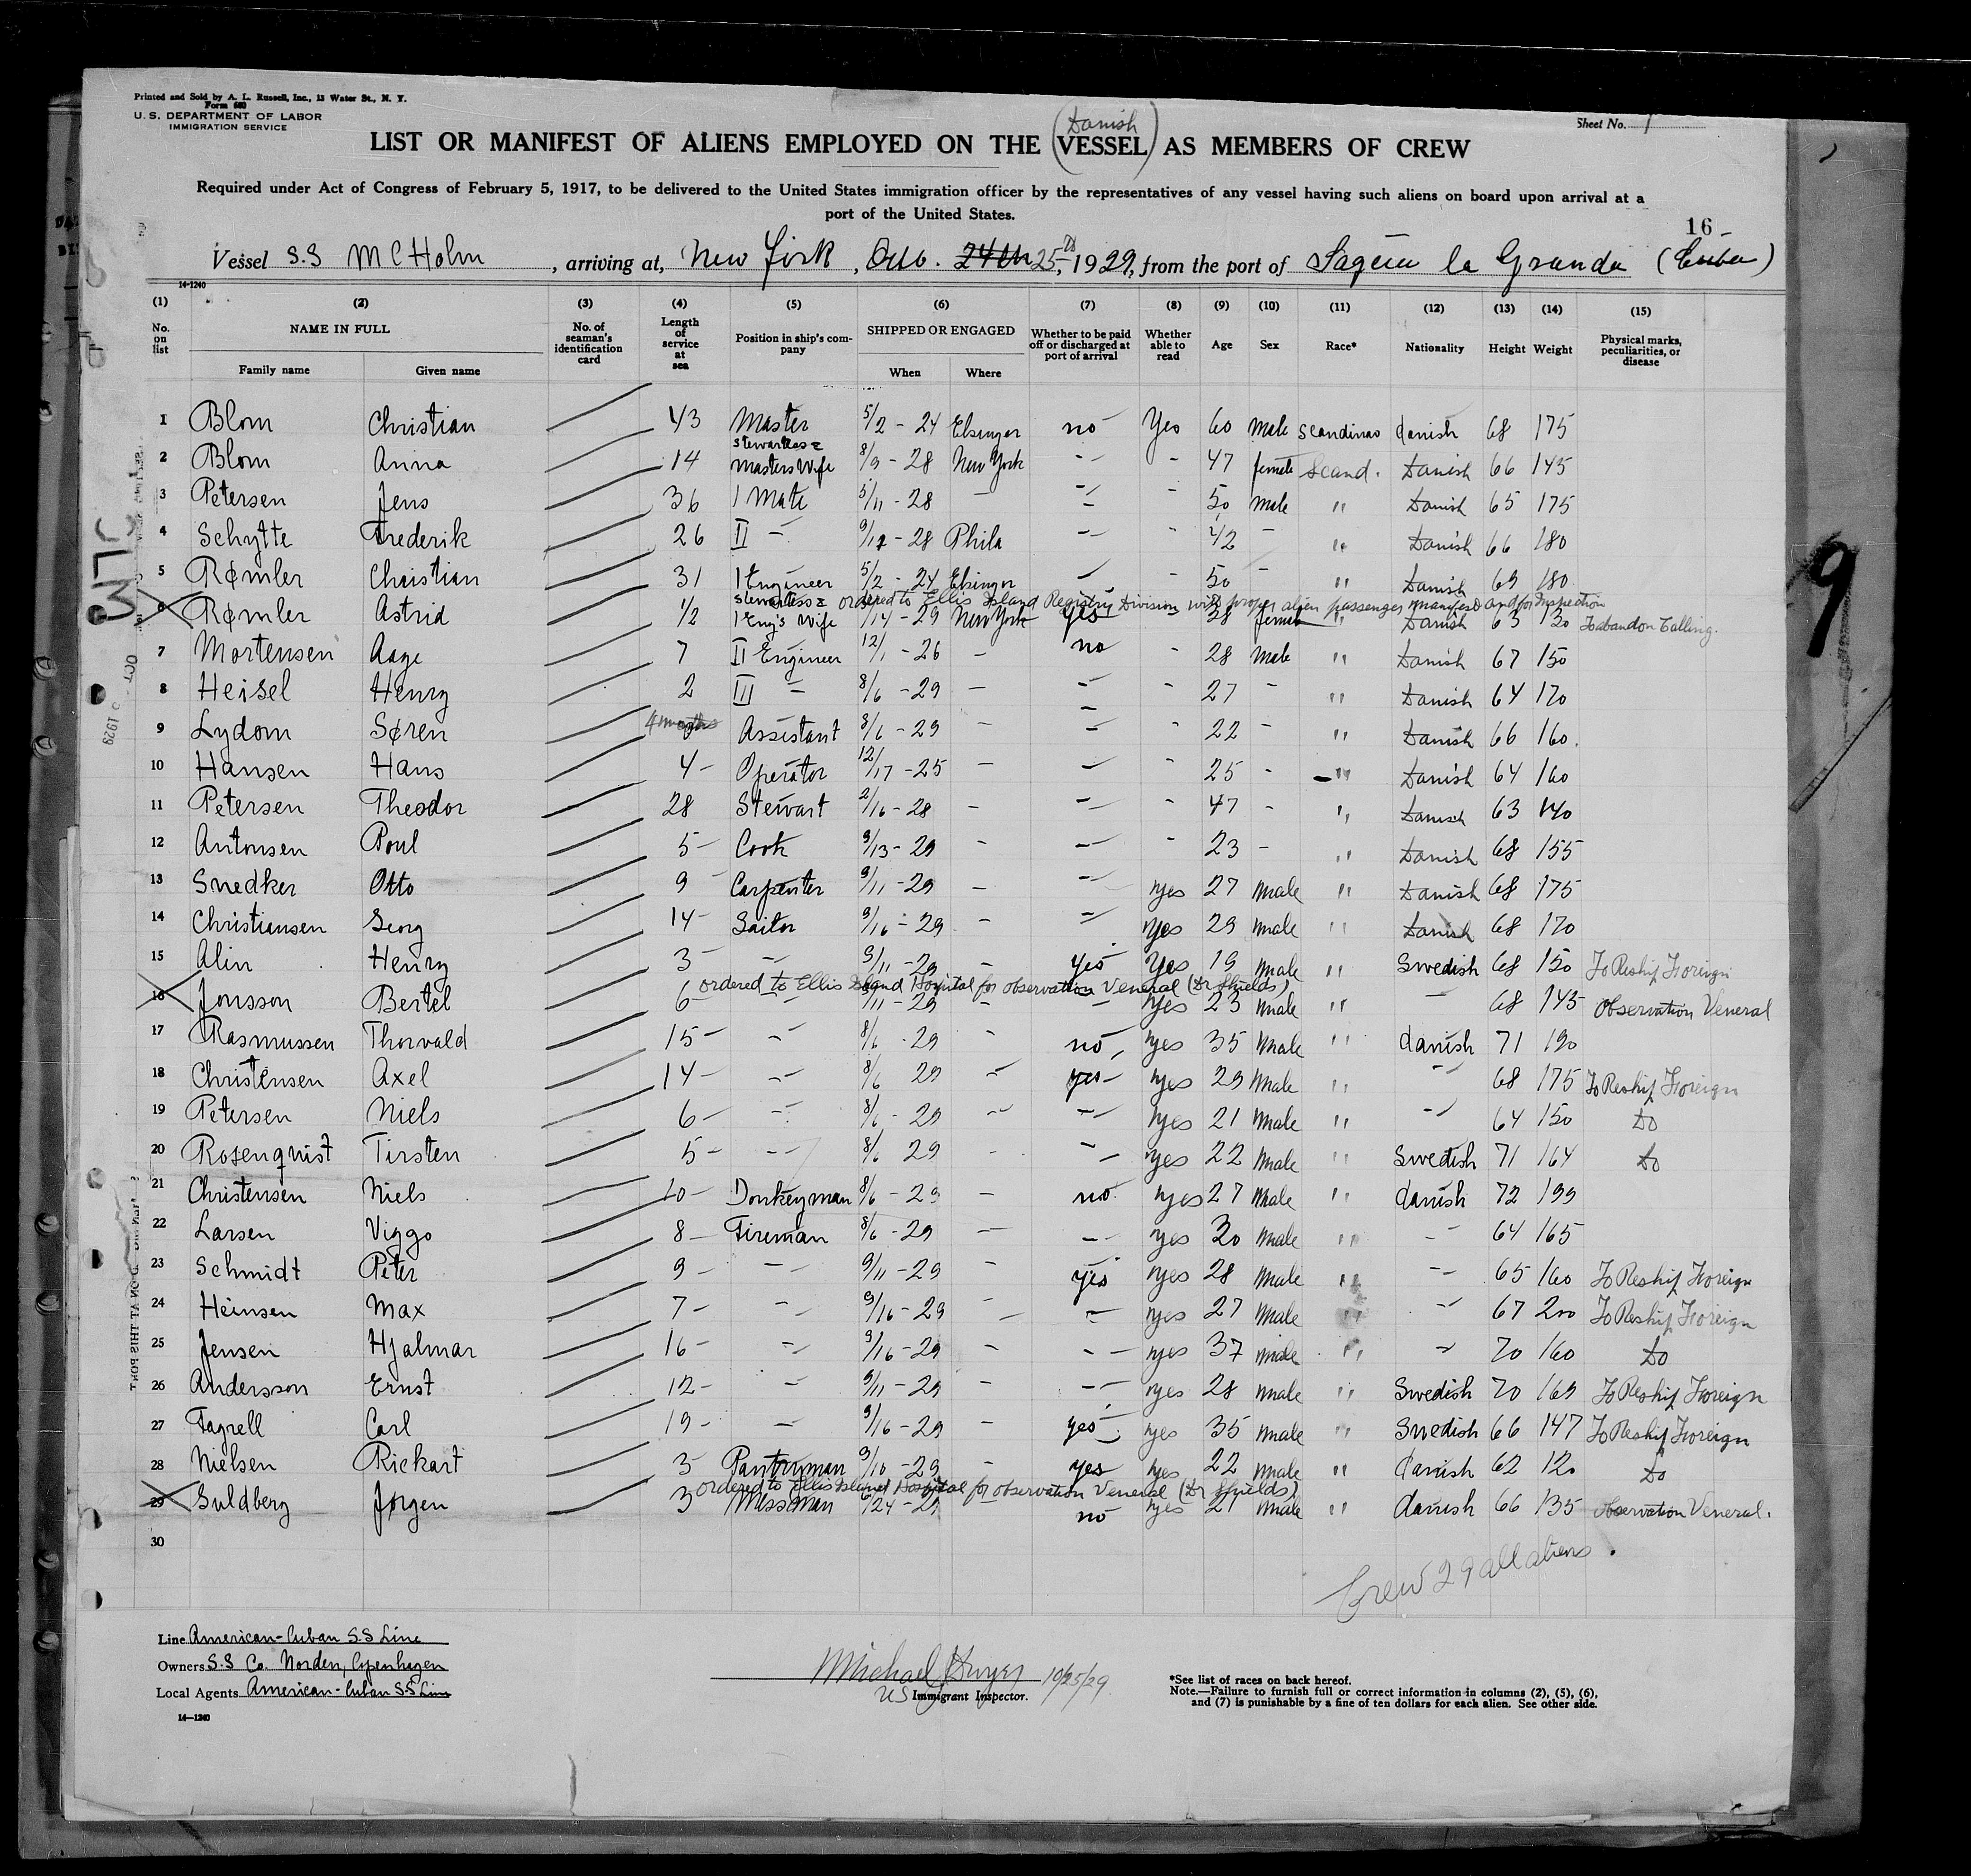 Printed and Sold by A. L. Russell, Inc., 13 Water St., N. Y.
Form 680
U. S. DEPARTMENT OF LABOR
IMMIGRATION SERVICE
Sheet No. 1
(Danish)
LIST OR MANIFEST OF ALIENS EMPLOYED ON THE VESSEL AS MEMBERS OF CREW
Required under Act of Congress of February 5, 1917, to be delivered to the United States immigration officer by the representatives of any vessel having such aliens on board upon arrival at a
port of the United States.
16
Vessel S.S McHolm, arriving at, New York, 24th 25th, 1929, from the port of Sagua la Granda (Cuba)
14-1240
(1) (2) (3) (4) (5) (6) (7) (8) (9) (10) (11) (12) (13) (14) (15)
No. on list NAME IN FULL No. of seaman's identification card Length of service at sea Position in ship's company SHIPPED OR ENGAGED Whether to be paid off or discharged at port of arrival Whether able to read Age Sex Race* Nationality Height Weight Physical marks, peculiarities, or disease
Family name Given name When Where
1 Blom Christian 43 Master 5/2 - 24 Elsinger no Yes 60 Male Scandinav danish 68 175
2 Blom Anna 14 Stewardess & Masters Wife 8/9 - 28 New York -"- - 47 female Scand. Danish 66 145
3 Petersen Jens 36 I Mate 5/11 - 28 - -"- - 50 male " Danish 65 175
4 Schytte Frederik 26 II - 9/12 - 28 Phila -"- - 42 - " Danish 66 180
5 Rømler Christian 31 I Engineer 5/2 - 24 Elsinger - - 50 - " Danish 69 180
ordered to Ellis Island Registry Division with proper alien passenger manifest and for Inspection
6 Rømler Astrid 1/2 Stewardess & I Eng's Wife /14 - 29 New York Yes - 38 female " Danish 63 130 To abandon Calling.
7 Mortensen Aage 7 II Engineer 12/1 - 26 - no - 28 Male " Danish 67 150
8 Heisel Henry 2 III - 8/6 - 29 - -"- - 27 - " Danish 64 170
9 Lydom Søren 4 months Assistant 8/6 - 29 - -"- - 22 - " Danish 66 160.
10 Hansen Hans 4- Operator 12/17 - 25 - - - 25 - " Danish 64 160
11 Petersen Theodor 28 Stewart 2/16 - 28 - -"- - 47 - " Danish 63 140
12 Antonsen Poul 5- Cook 9/13 - 29 - -"- - 23 - " Danish 68 155
13 Snedker Otto 9 Carpenter 9/11 - 29 - -"- yes 27 male " Danish 68 175
14 Christiansen Georg 14- Sailor 9/16 - 29 - -"- yes 29 male " Danish 68 170
15 Alin Henry 3- -"- 9/11 - 29 - yes yes 19 male " Swedish 68 150 To Reship Foreign
ordered to Ellis Island Hospital for observation Veneral (Dr Shields)
16 Jonsson Bertel 6- -"- 9/11 - 29 - yes 23 male " -"- 68 145 Observation Veneral
17 Rasmussen Thorvald 15- -"- 8/6 - 29 - no, yes 35 Male " danish 71 190
18 Christensen Axel 14- -"- 8/6 29 -"- yes- yes 29 Male " -"- 68 175 To Reship Foreign
19 Petersen Niels 6- -"- 8/6 - 29 -"- -"- yes 21 Male " -"- 64 150 Do
20 Rosenqvist Tirsten 5- -"- 8/6 29 - -"- yes 22 Male " Swedish 71 164 Do
21 Christensen Niels 10- Donkeyman 8/6 - 29 - no. yes 27 Male " danish 72 199
22 Larsen Viggo 8- Fireman 8/6 - 29 - -"- yes 30 male " - 64 165
23 Schmidt Peter 9- -"- 9/11 - 29 yes yes 28 male " -"- 65 160 To Reship Foreign
24 Heinsen Max 7- -"- 9/16 - 29 - - yes 27 Male " -"- 67 200 To Reship Foreign
25 Jensen Hjalmar 16- -"- 9/16 - 29 - -- yes 37 male " -"- 70 160 Do
26 Andersson Ernst 12- - 9/11 - 29 - -"- yes 28 male " Swedish 70 169 To Reship Foreign
27 Fagrell Carl 19- - 9/16 - 29 - yes yes 35 male " Swedish 66 147 To Reship Foreign
28 Nielsen Rickart 3 Pantryman 9/10 - 29 - yes yes 22 male " danish 62 120 Do
ordered to Ellis Island Hospital for observation Veneral (Dr Shields)
29 Guldberg Jørgen 3 Messman /24 - 29 no yes 21 male " danish 66 135 Observation Veneral.
30
Crew 29 all aliens.
Line American-Cuban S.S Line
Owners S.S Co. Norden, Copenhagen
Local Agents American-Cuban S.S Line
14—1240
Michael Dwyer 10/25/29
US Immigrant Inspector.
*See list of races on back hereof.
Note.—Failure to furnish full or correct information in columns (2), (5), (6),
and (7) is punishable by a fine of ten dollars for each alien. See other side.
9